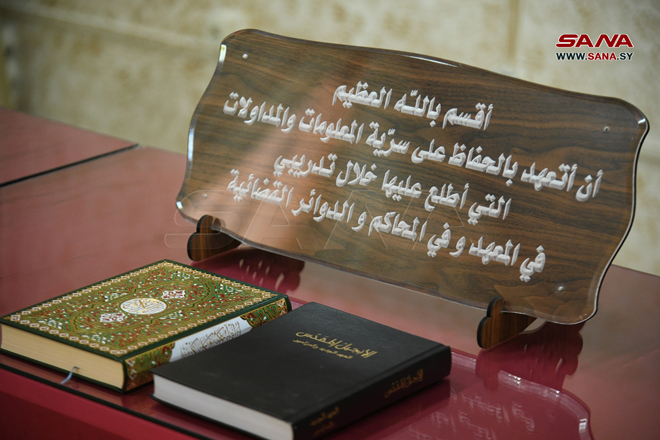 SANA
WWW.SANA.SY
أقسم بالله العظيم
أن أتعهد بالحفاظ على سرّية المعلومات والمداولات
التي أطلع عليها خلال تدريبي
في المعهد و في المحاكم و الدوائر القضائية
SANA
الإنجيل المقدس